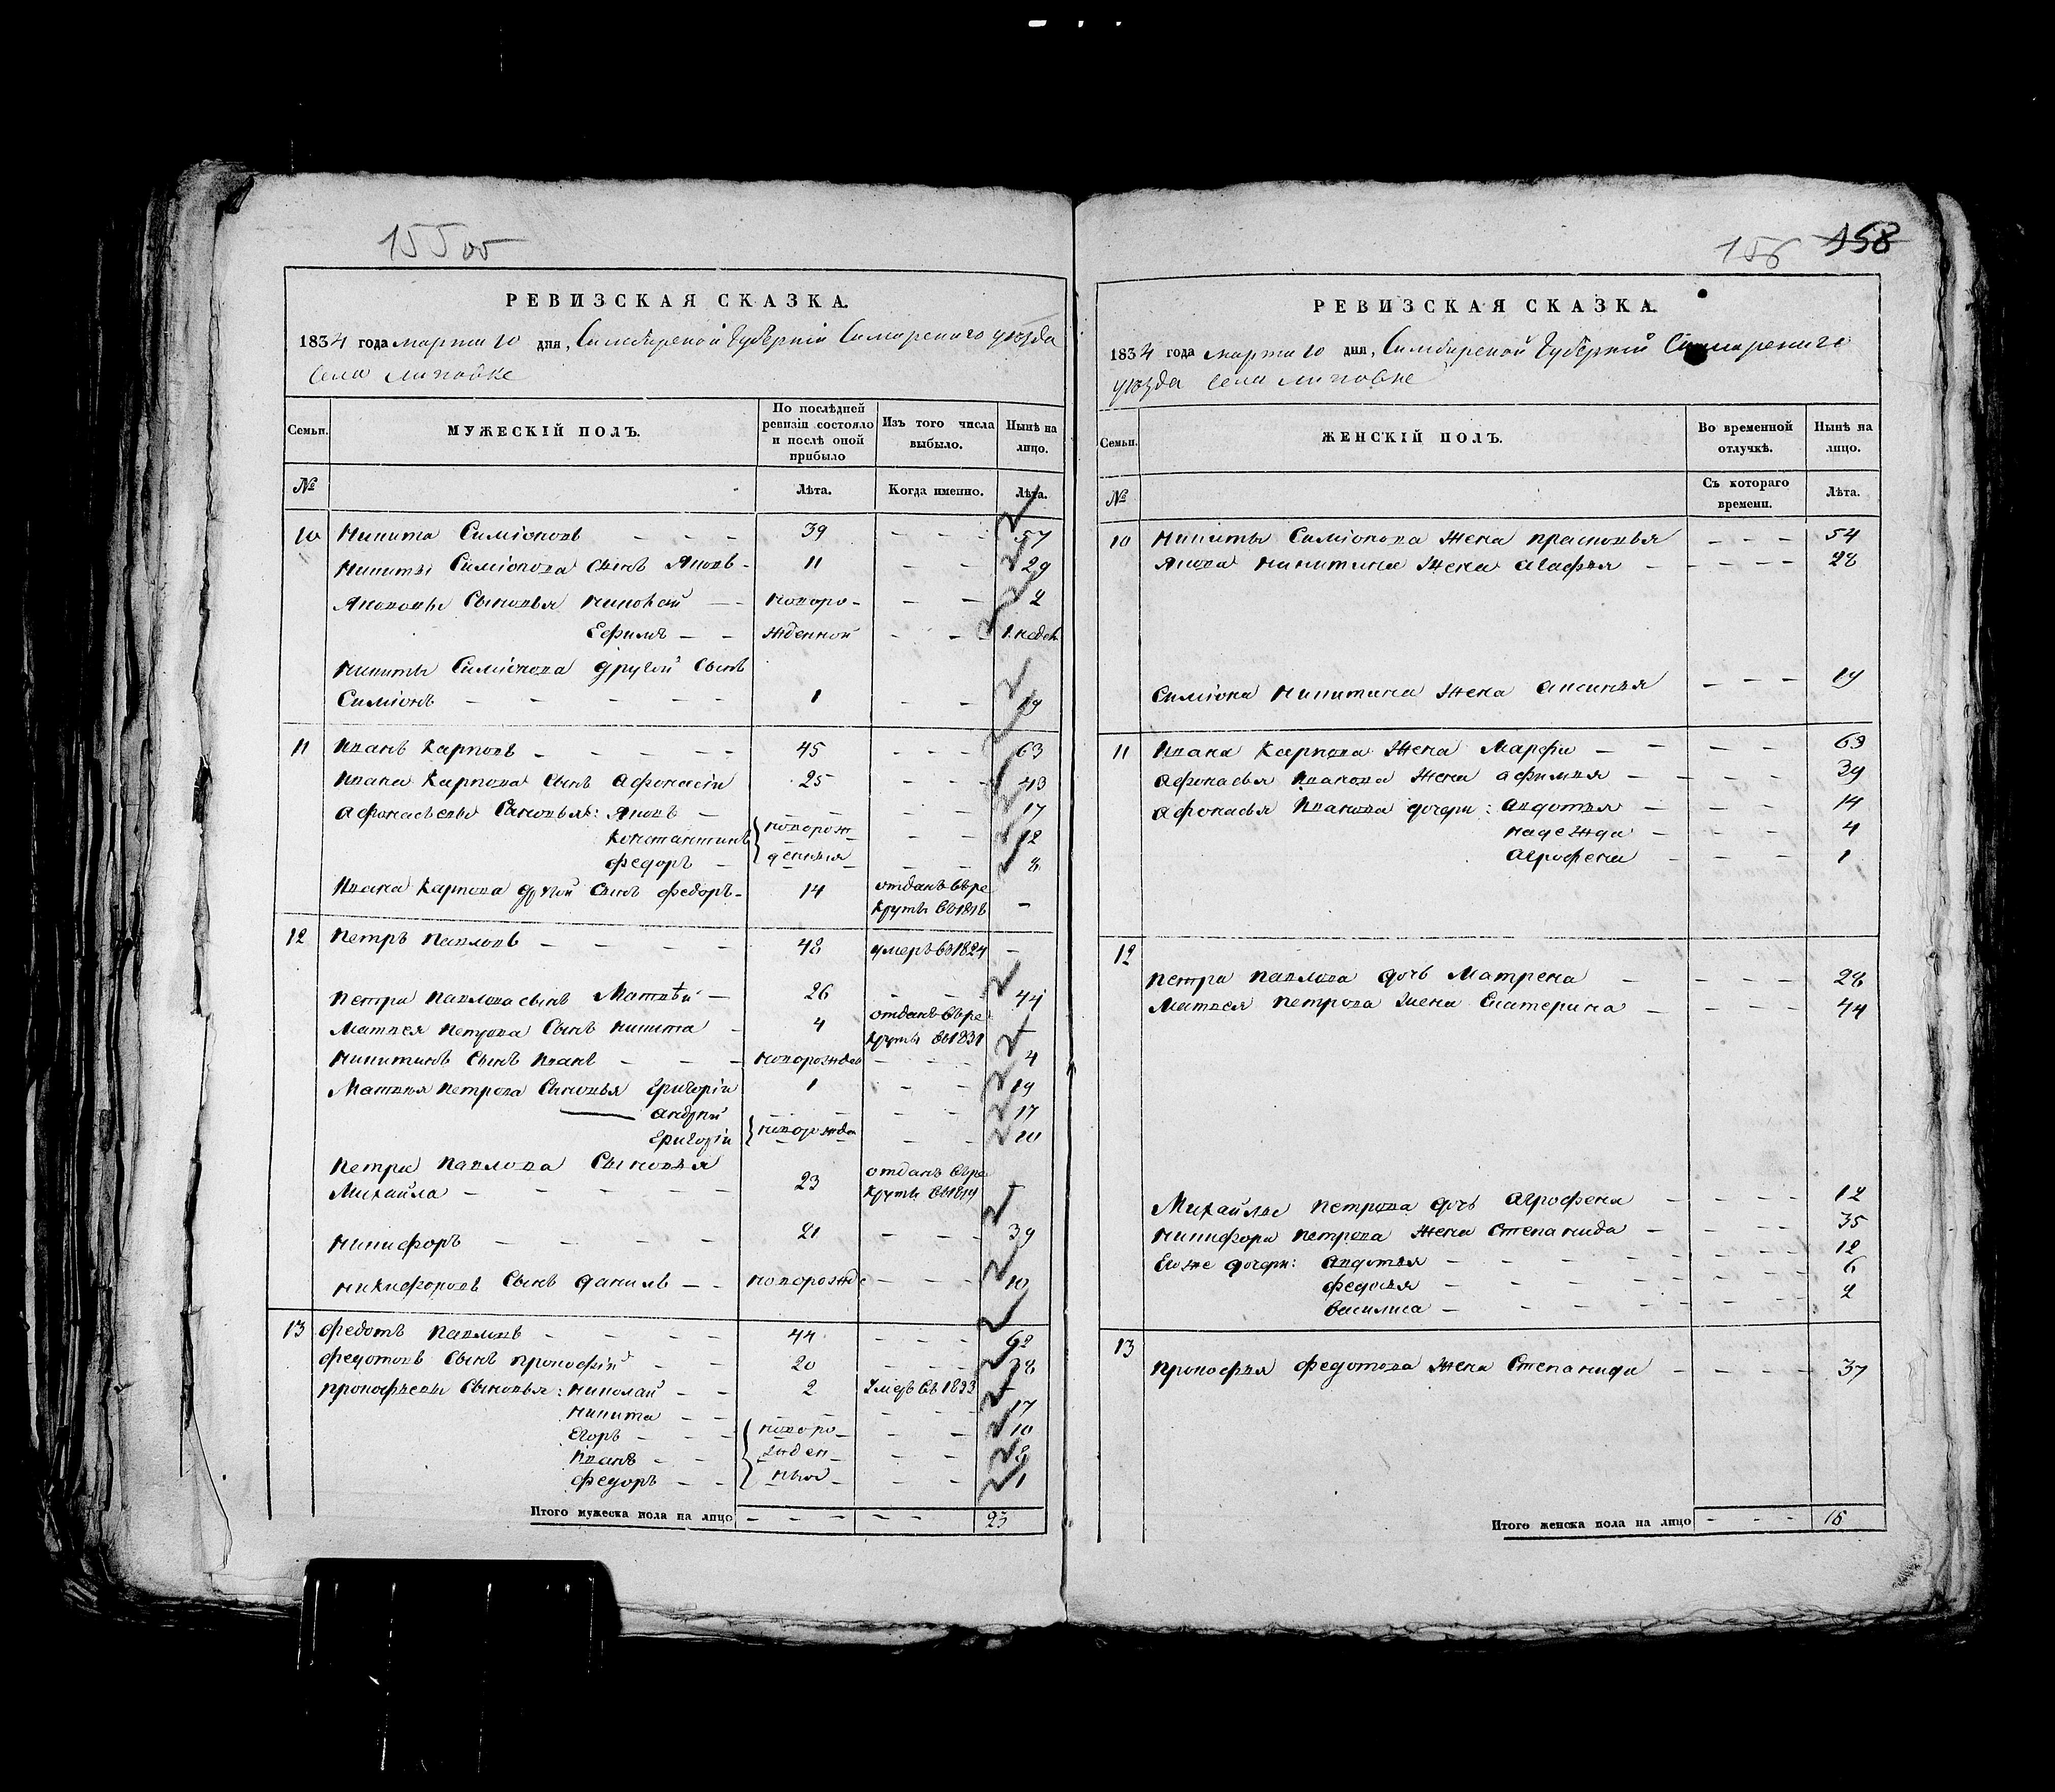 155 об
РЕВИЗСКАЯ СКАЗКА.
1834 года марта 10 дня, Симбирской Губернии Самарского уѣзда
села Липовке
Семьи. МУЖЕСКІЙ ПОЛЪ. По послѣдней ревизіи состояло и послѣ оной прибыло Изъ того числа выбыло. Нынѣ на лицо.
№ Лѣта. Когда именно. Лѣта.
10 Никита Симіоновъ - - - 39 - - - 57
Никиты Симіонова сынъ Яковъ - 11 - - 29
Якововы сыновья Николай - - новоро- - - 2
Ефимъ - - жденной - - 1 недел
Никиты Симіонова другой сынъ
Симіонъ - - - - - 1 - - 19
11 Иванъ Карповъ - - - - - 45 - - - 63
Ивана Карпова сынъ Афонасіи 25 - - - 43
Афонасьевы сыновья: Яковъ - - - - - 17
Константинъ новорож - - 12
Федоръ - денныя - - 8
Ивана Карпова другой сынъ Федоръ - 14 отданъ въ ре
круты въ 1818 -
12 Петръ Павловъ - - - - 48 умеръ въ 1824 -
Петра Павлова сынъ Матвѣй - 26 - - - 44
Матвея Петрова сынъ Никита - 4 отданъ въ ре
круты въ 1831
Никитинъ сынъ Иванъ - - - новорожден - - - 4
Матвея Петрова сыновья Григоріи 1 - - 19
Андрей - - - - 17
Григоріи новорожден - - 10
Петра Павлова сыновья
Михайла - - - - - 23 отданъ въ ре
круты въ 1819
Никифоръ - - - - - 21 - - - 39
Никифоровъ сынъ Данилъ - - новорожде - - - 10
13 Федотъ Павловъ - - - - 44 - - - 62
Федотовъ сынъ Прокофіи - - 20 - - - 38
Прокофьевы сыновья: Николай - - 2 умеръ въ 1833 -
Никита - - - - - - - 17
Егоръ - - - новоро - - 10
Иванъ - - жден - - 8
Федоръ - - ныя - - 1
Итого мужеска пола на лицо - - - - - 23
156 158
РЕВИЗСКАЯ СКАЗКА.
1834 года марта 10 дня, Симбирской Губерний Самарского
уѣзда села Липовке
Семьи. ЖЕНСКІЙ ПОЛЪ. Во временной отлучкѣ. Нынѣ на лицо.
№ Съ котораго времени. Лѣта.
10 Никиты Симіонова жена Прасковья - - - 54
Якова Никитина жена Агафья - - - - - 28
Симіона Никитина жена Аксинья - - - 19
11 Ивана Карпова жена Марфа - - - - 63
Афонасья Иванова жена Афимья - - - - 39
Афонасья Иванова дочери: Авдотья - - - 14
Надежда - - - 4
Агрофена - - - 1
12
Петра Павлова дочь Матрена - - - - 28
Матвея Петрова жена Екатерина - - - - 44
Михайлы Петрова дочь Агрофена - - - - 12
Никифора Петрова жена Степанида - - - - 35
Ево же дочери: Авдотья - - - - - 12
Федосья - - - - - 6
Василиса - - - - - 2
13
Прокофья Федотова жена Степанида - - - - 37
Итого женска пола на лицо - - - 16